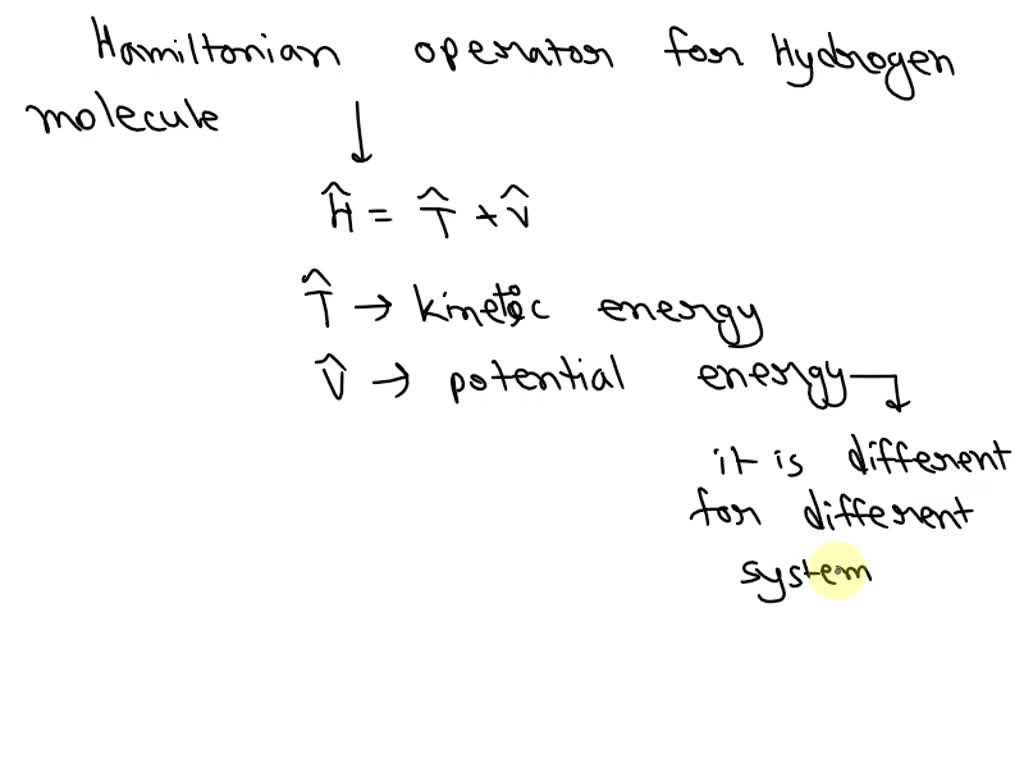 Hamiltonian operator for Hydrogen
molecule
Ĥ = T̂ + V̂
T̂ → kinetic energy
V̂ → potential energy
it is different
for different
system